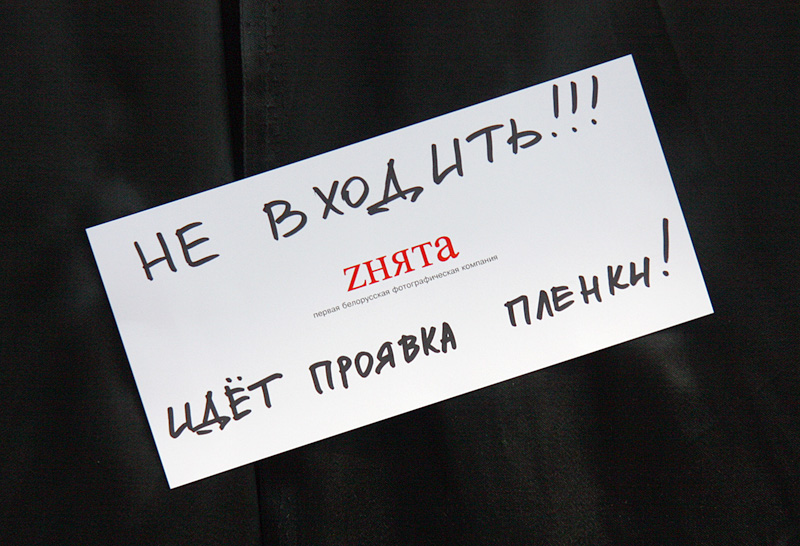 НЕ ВХОДИТЬ!!!
zнята
первая белорусская фотографическая компания
ИДЁТ ПРОЯВКА ПЛЕНКИ!